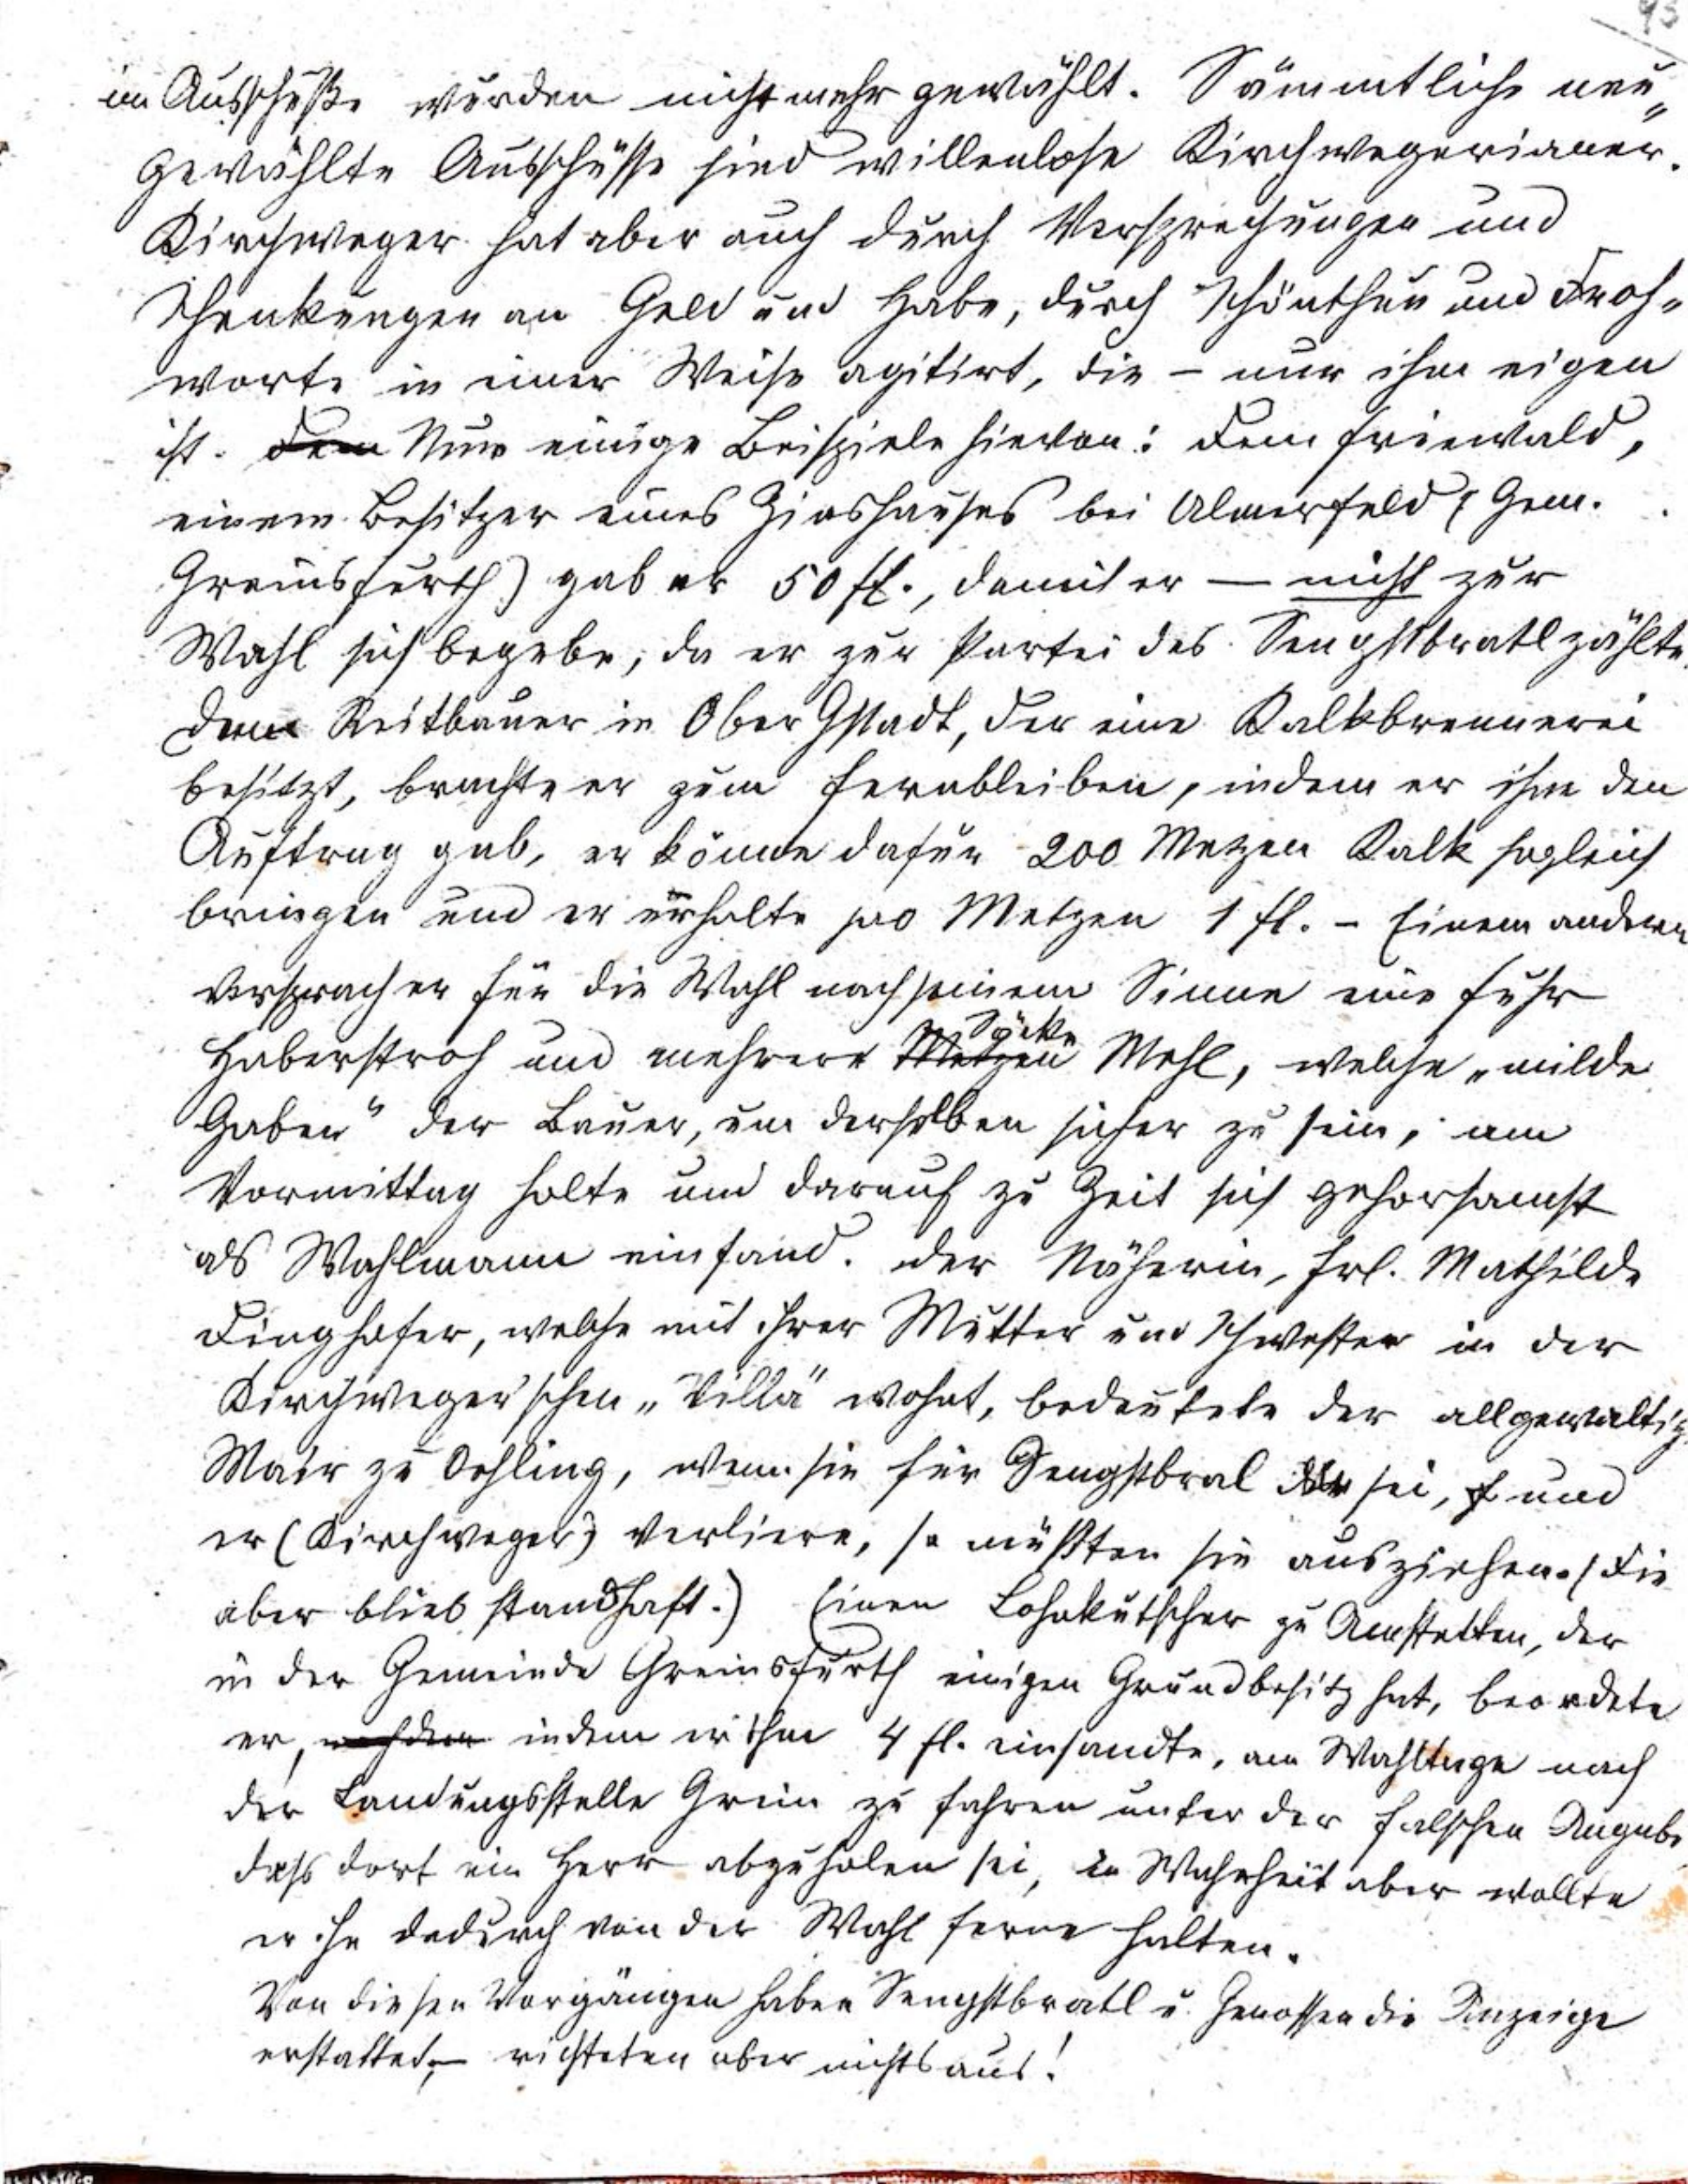 93
im Ausschuße wurden nicht mehr gewählt. Sämmtliche neu„
gewählte Ausschüsse sind willenlose Kirchwegerianer.
Kirchweger hat aber auch durch Versprechungen und
Schenkungen an Geld und Habe, durch Schönthun und Droh„
worte in einer Weise agitirt, die – nur ihm eigen
ist. Dem Nur einige Beispiele hievon: Dem Friewald,
einem Besitzer eines Zinshauses bei Ulmerfeld (Gem.
Greinsfurth) gab er 50 fl., damit er — nicht zur
Wahl sich begebe, da er zur Partei des Sengstbratl zählte.
Dem Reitbauer in Ober Gstadt, der eine Kalkbrennerei
besitzt, brachte er zum Fernbleiben, indem er ihm den
Auftrag gab, er könne dafür 200 Metzen Kalk sogleich
bringen und er erhalte pro Metzen 1 fl. – Einem andern
versprach er für die Wahl nach seinem Sinne eine Fuhr
Säcke
Haberstroh und mehrere Metzen Mehl, welche „milde
Gaben“ der Bauer, um derselben sicher zu sein, am
Vormittag holte und darauf zu Zeit sich gehorsamst
als Wahlmann einfand. Der Näherin, Frl. Mathilde
Dinghofer, welche mit ihrer Mutter und Schwester in der
Kirchweger'schen „Villa“ wohnt, bedeutete der allgewaltig.
Mair zu Oehling, wenn sie für Sengstbral sei, und
er (Kirchweger) verliere, so müßten sie ausziehen. (Die
aber blieb standhaft.) Einen Lohnkutscher zu Amstetten, der
in der Gemeinde Greinsfurth einigen Grundbesitz hat, beordete
er, nachdem indem er ihm 4 fl. einsandte, am Wahltage nach
der Landungsstelle Grein zu fahren unter der falschen Angabe,
dass dort ein Herr abzuholen sei, in Wahrheit aber wollte
er ihn dadurch von der Wahl ferne halten.
Von diesen Vorgängen haben Sengstbratl u. Genossen die Anzeige
erstattet, – richteten aber nichts aus!